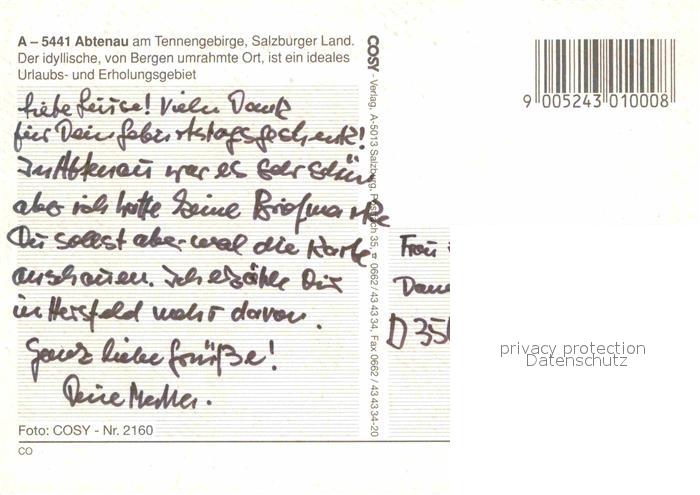 A – 5441 Abtenau am Tennengebirge, Salzburger Land.
Der idyllische, von Bergen umrahmte Ort, ist ein ideales
Urlaubs- und Erholungsgebiet
Liebe Luise! Vielen Dank
für Dein Geburtstagsgeschenk!
In Abtenau war es sehr schön
aber ich hatte keine Briefmarke
Du sollst aber mal die Karte
anschauen. Ich erzähle Dir
in Hersfeld mehr davon.
Ganz liebe Grüße!
Deine
Foto: COSY - Nr. 2160
CO
COSY - Verlag, A-5013 Salzburg, Postfach 35, ☎ 0662/43 43 34, Fax 0662/43 43 34-20
9 005243 010008
Frau
D 35
privacy protection
Datenschutz